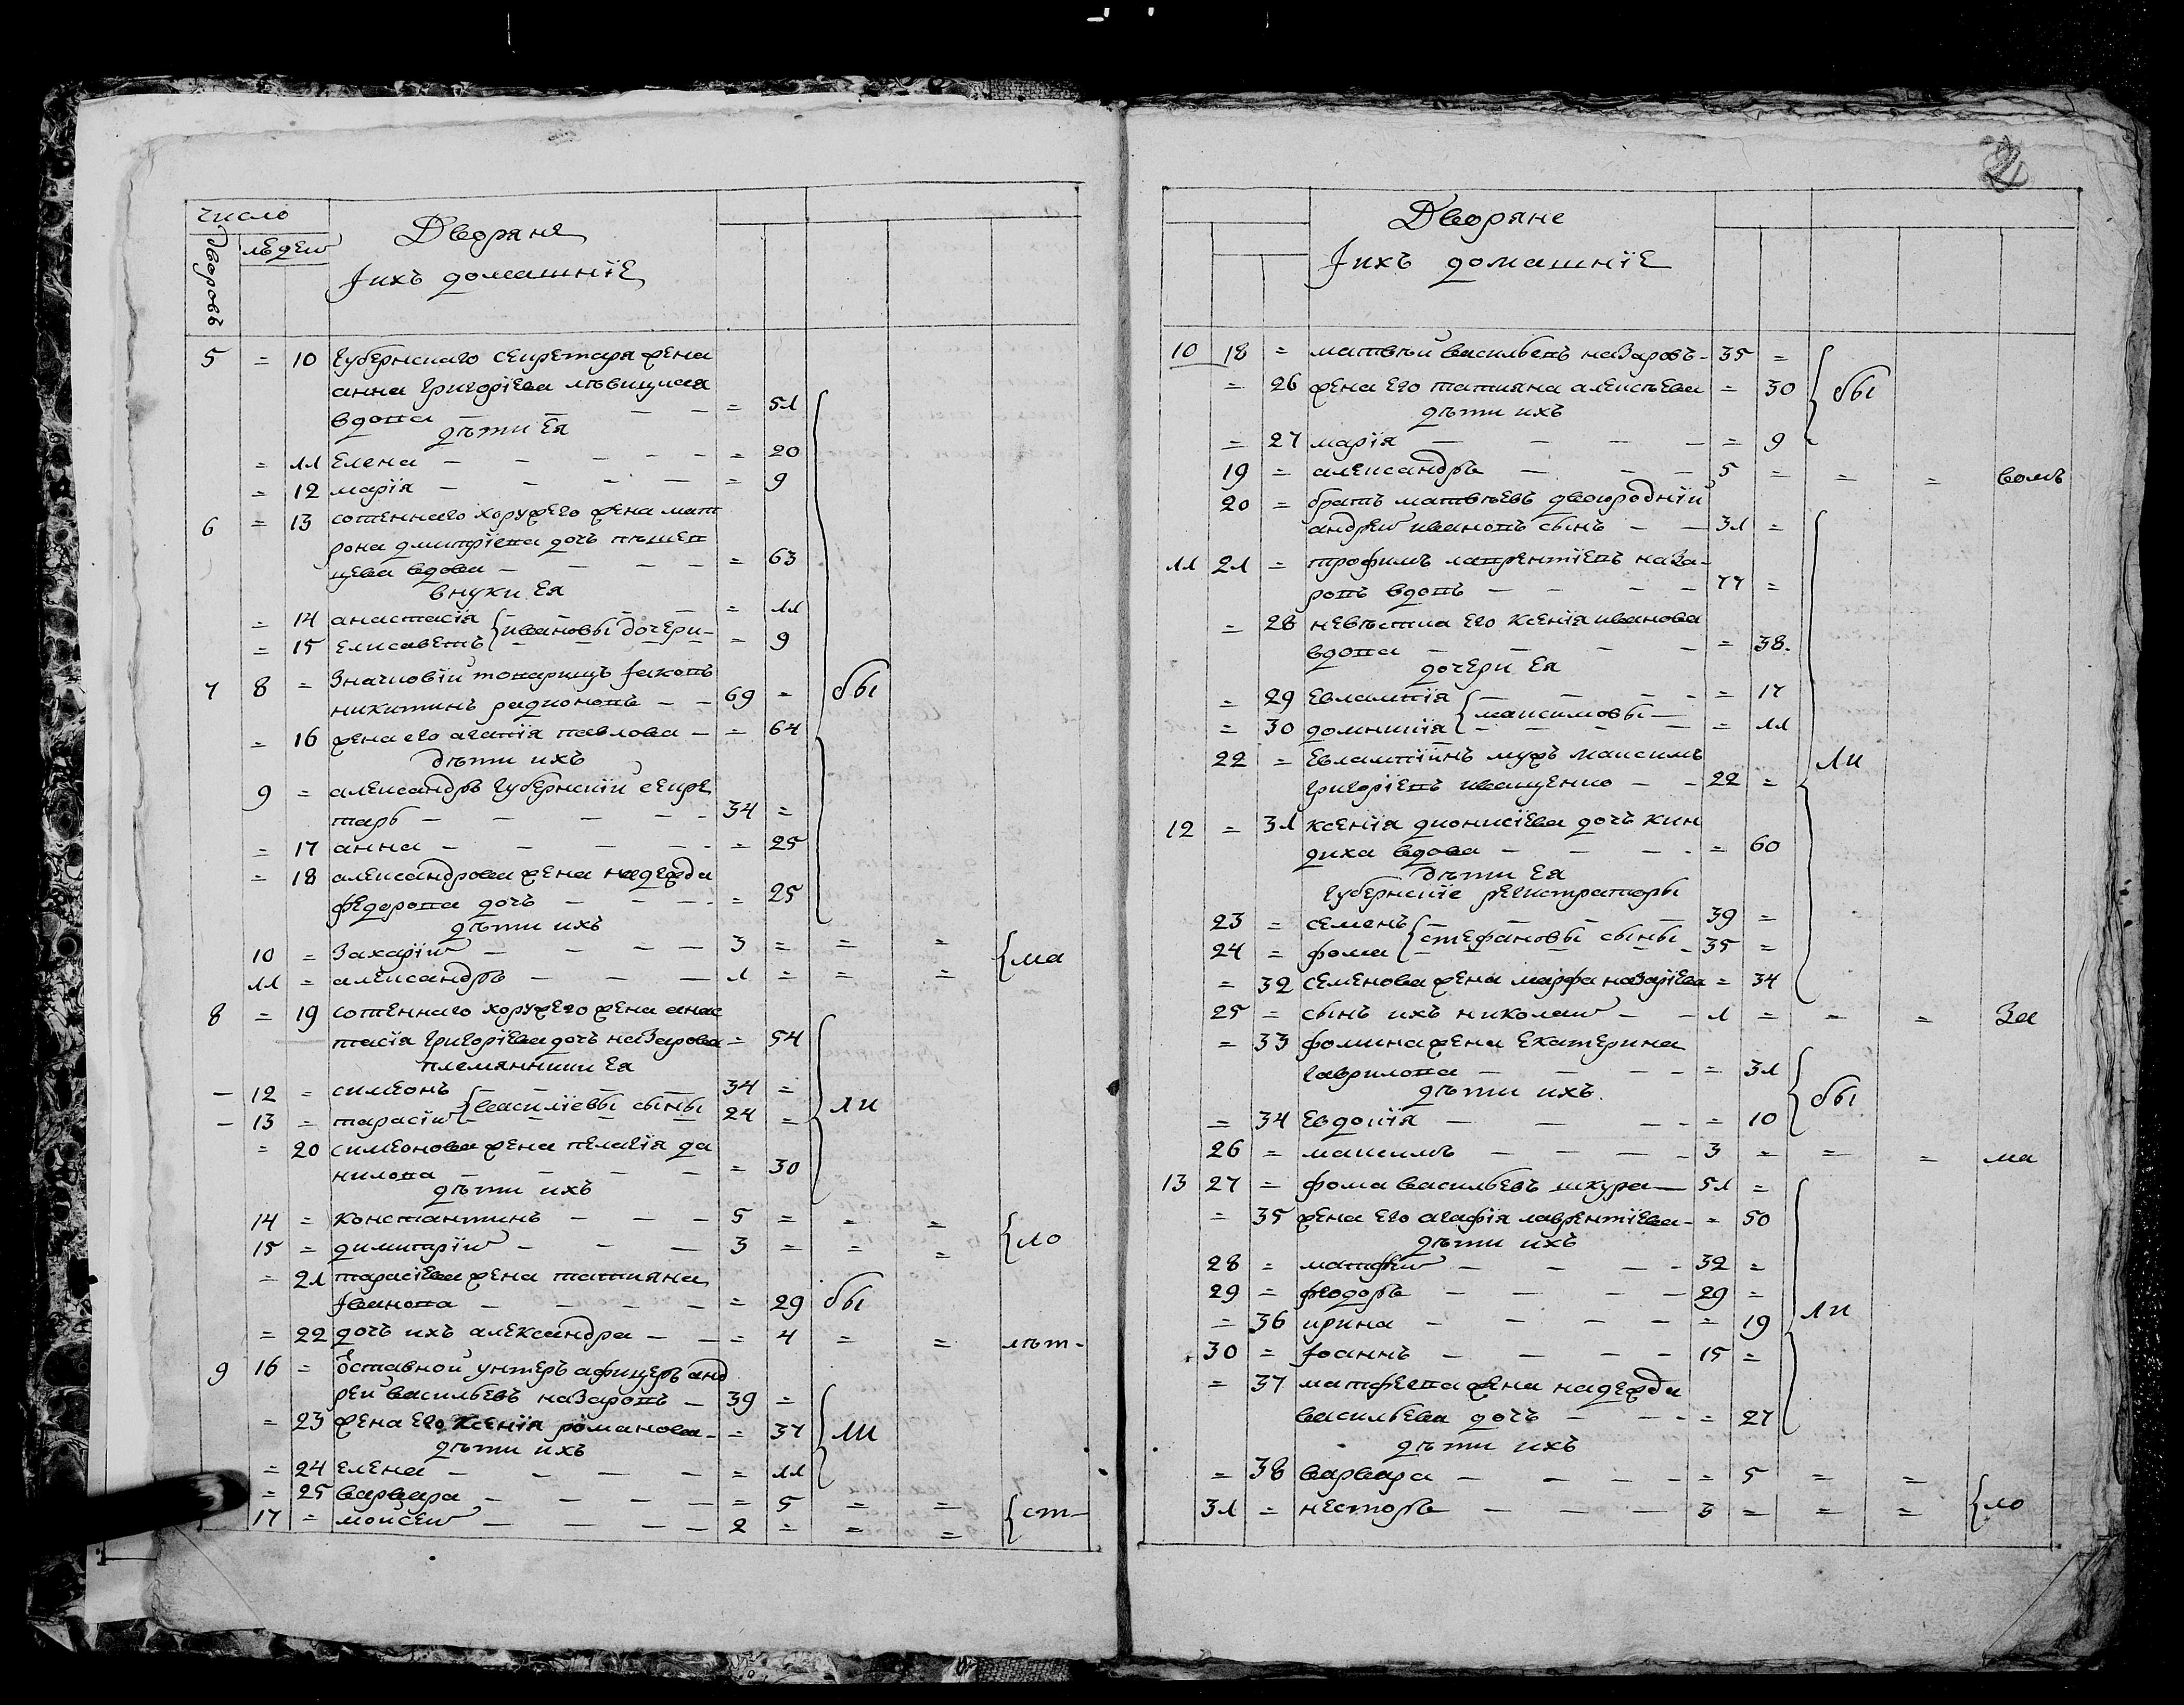 число
дворовъ
людей
Дворяне
Iихъ домашнїе
5 = 10 Губернскаго секретаря жена
анна григорїева лѣвицкая
вдова — — — — = 51
дѣти Ея
= 11 Елена — — — — = 20
= 12 марїя — — — — = 9
6 = 13 сотеннаго хоружего жена мат
рона дмитрїева дочь
цева вдова — — — — = 63
внуки Ея
= 14 анастасїя — — — = 11
= 15 Елисаветъ { ивановы дочери — = 9
7 8 = Значковїй товарищъ Iаковъ
никитинъ радионовъ — — 69 =
бы
= 16 жена его агапїя павлова — = 64
дѣти ихъ
9 = александръ Губернскїй секре
тарь — — — — — 34 =
= 17 анна — — — — = 25
= 18 александрова жена надежда
федорова дочь — — — = 25
дѣти ихъ
10 = Захарїй — — — — 3 = = =
11 = александръ — — — 1 = = =
{ ма
8 = 19 сотеннаго хоружего жена анас
тасїя григорїева дочь назарова = 54
племянники Ея
— 12 = симеонъ — — — — 34 =
— 13 = тарасїй { василїевы сыны 24 =
ли
= 20 симеонова жена пелагїя да
нилова — — — — = 30
дѣти ихъ
14 = константинъ — — — 5 = = =
15 = димитрїй — — — 3 = = =
{ ло
= 21 тарасїева жена татияна
Iванова — — — — = 29 бы
= 22 дочь ихъ александра — — = 4 = = лѣт-
9 16 = ѿставной унтеръ афицеръ анд
рей васильевъ назаровъ — 39 =
= 23 жена его Ксенїя романова — = 37
ли
дѣти ихъ
= 24 Елена — — — — = 11
= 25 варвара — — — — = 5 = =
17 = мойсей — — — — 2 = = =
{ ст-
Дворяне
Iихъ домашнїе
10 18 = матвѣй васильевъ назаровъ — 35 =
= 26 жена Его татияна алексѣева = 30
бы
дѣти ихъ
= 27 марїя — — — — = 9
19 = александръ — — — 5 = = = вомъ
20 = братъ матвѣевъ двоюроднїй
андрей ивановъ сынъ — — 31 =
11 21 = трофимъ лаврентїевъ наза-
ровъ вдовъ — — — — 77 =
= 28 невѣстка его Ксенїя иванова
вдова — — — — = 38.
дочери Ея
= 29 Евлампїя — — — — = 17
= 30 домникїя { максимовы — = 11
22 = Евлампїинъ мужъ максимъ
григорїевъ иващенко — — 22 =
ли
12 = 31 Ксенїя дионисїева дочь кин
диха вдова — — — — = 60
дѣти Ея
Губернскїе регистраторы
23 = семенъ — — — — 39 =
24 = фома { стефановы сыны — 35 =
= 32 семенова жена марфа назарїева = 34
25 = сынъ ихъ николай — — 1 = = = За
= 33 фомина жена Екатерина
гаврилова — — — — = 31
дѣти ихъ.
бы
= 34 Евдокїя — — — — = 10
26 = максимъ — — — — 3 = = = ма
13 27 = фома васильевъ шкура — 51 =
= 35 жена его агафїя лаврентїева — = 50
дѣти ихъ
28 = матфей — — — — 32 =
29 = феодоръ — — — — 29 =
= 36 ирина — — — — = 19
ли
30 = Iоаннъ — — — — 15 =
= 37 матфеева жена надежда
васильева дочь — — — = 27
дѣти ихъ
= 38 варвара — — — — = 5 = =
31 = несторъ — — — — 3 = = =
{ ло